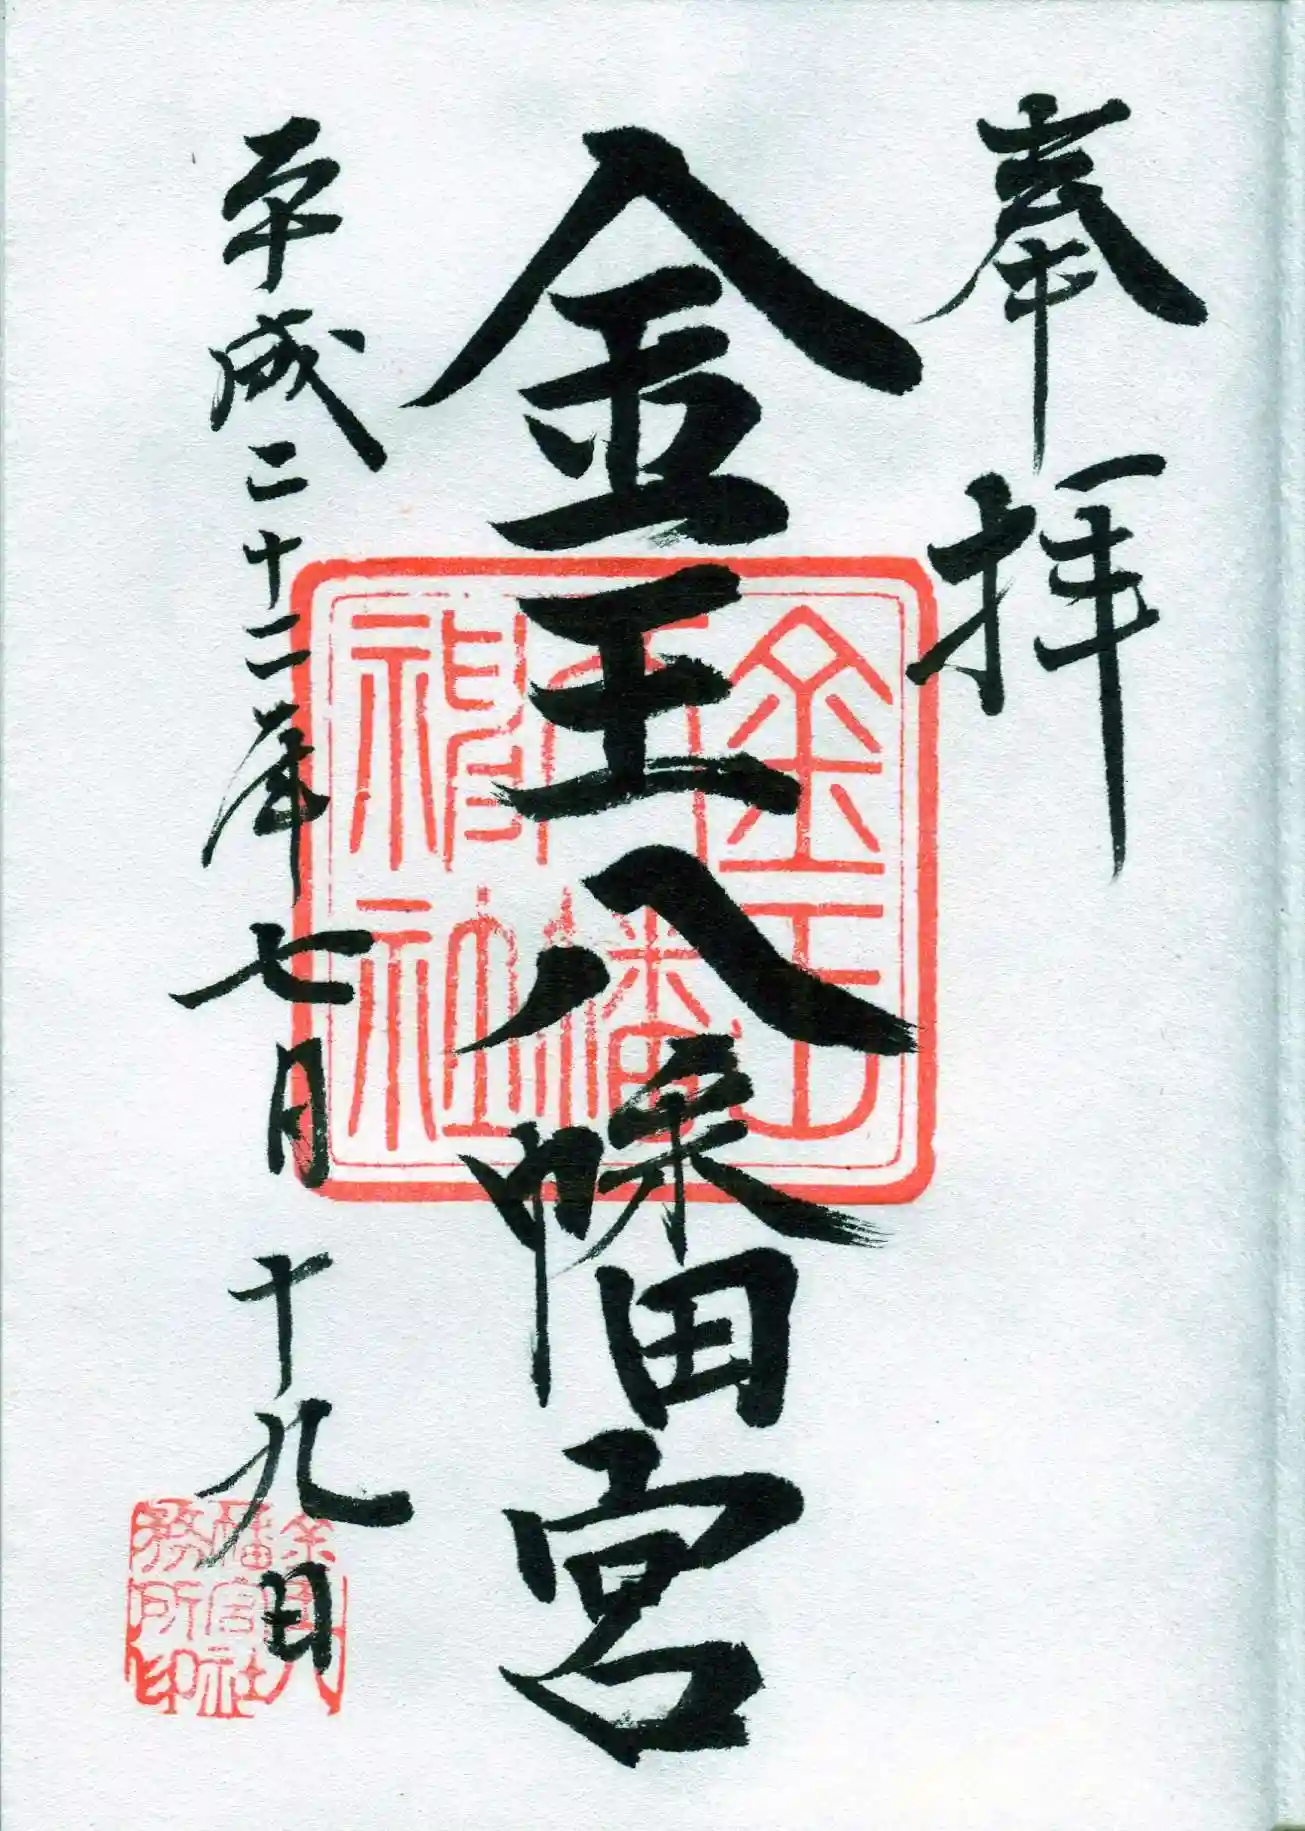 奉拝
金王八幡宮
平成二十二年七月十九日
金王八幡神社
金王八幡宮社務所印